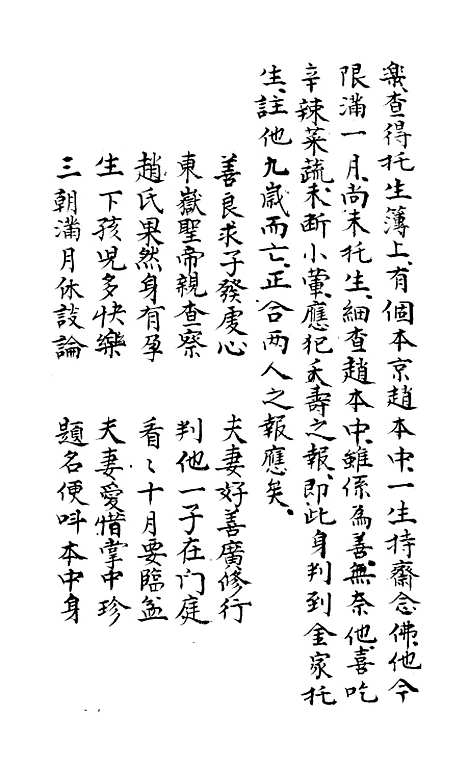 樂、查得托生簿上、有個本京趙本中、一生持齋念佛、他今
限滿一月、尚未托生、細查趙本中、雖係為善、無奈他喜吃
辛辣菜蔬、未断小葷、應犯夭壽之報、即此身判到金家托
生、註他九歲而亡、正合两人之報應矣、
善良求子發虔心　夫妻好善廣修行
東嶽聖帝親查察　判他一子在门庭
趙氏果然身有孕　看〻十月要臨盆
生下孩児多快樂　夫妻愛惜掌中珍
三朝滿月休談論　題名便呌本中身